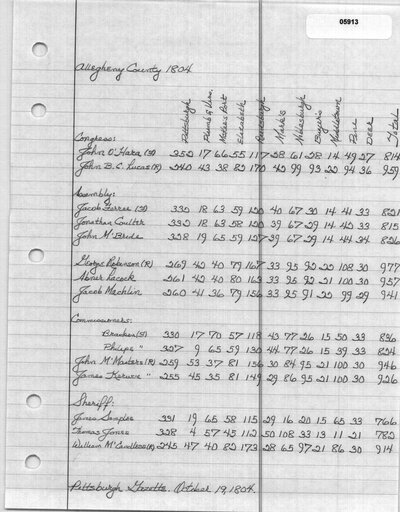 05913
Allegheny County 1804
Pittsburgh Plumb & Vers. McKees Port Elizabeth Greensburgh Marks's Noblesburgh Boyer's Middletown Pine Deer Total
Congress:
John O'Hara (F) 252 17 66 55 117 28 61 28 14 49 27 814
John B. C. Lucas (R) 240 43 38 82 170 42 99 93 22 94 36 959
Assembly:
Jacob Ferree (F) 332 18 63 59 120 40 67 30 14 41 33 821
Jonathan Coulter 332 18 63 58 120 39 67 29 14 42 33 815
John McBride 328 19 65 59 127 39 67 29 14 44 34 826
George Robinson (R) 269 42 40 79 167 33 95 92 22 108 30 977
Abner Lacock 261 42 40 80 163 33 96 92 21 100 30 957
Jacob Mechlin 260 41 36 79 156 33 95 91 22 99 29 941
Commissioners:
Bracken (F) 330 17 70 57 118 43 77 26 15 50 33 836
Philips " 327 9 65 59 130 44 77 26 15 39 33 824
John McMasters (R) 259 53 37 81 136 30 84 95 21 100 30 946
James Kerwin " 255 45 35 81 149 29 86 95 21 100 30 926
Sheriff:
James Semples 331 19 65 58 115 29 16 20 15 65 33 766
Thomas Jones 328 4 57 45 112 50 108 33 13 11 21 782
William McCandless (R) 245 47 40 82 173 28 65 97 21 86 30 914
Pittsburgh Gazette. October 19, 1804.